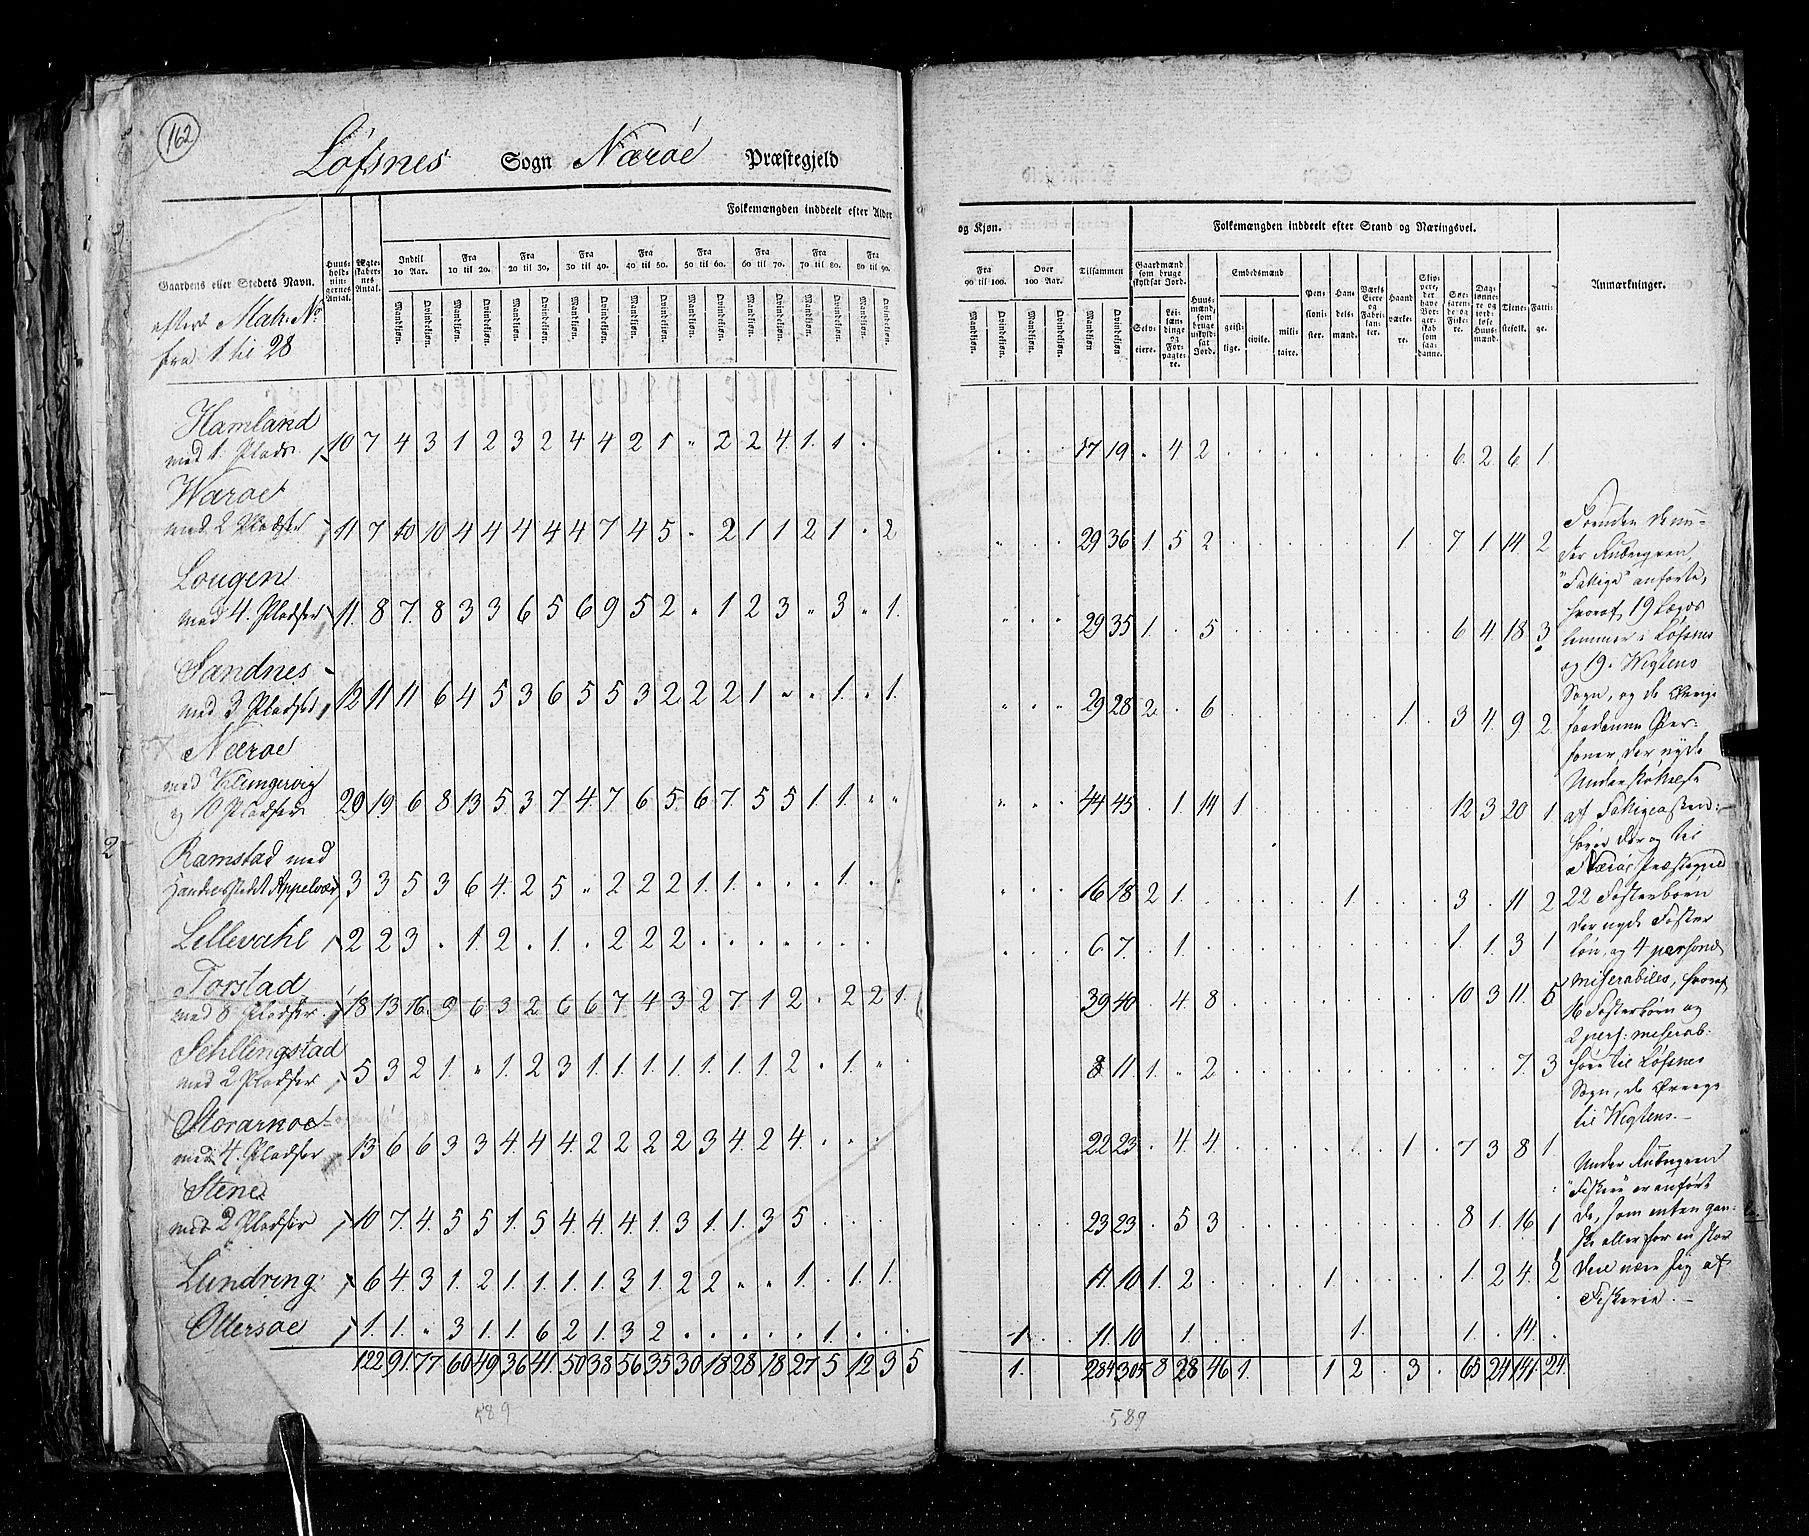 162
Löfsnes Sogn Nærøe Præstegjeld
Folkemængden inddeelt efter Alder
og Kjøn.
Tilsammen
Folkemængden inddeelt efter Stand og Næringsvei.
Anmærkninger.
Gaardens eller Stedets Navn.
Huusholdningernes Antal.
Ægteskabernes Antal.
Indtil 10 Aar. Fra 10 til 20. Fra 20 til 30. Fra 30 til 40. Fra 40 til 50. Fra 50 til 60. Fra 60 til 70. Fra 70 til 80. Fra 80 til 90.
Fra 90 til 100. Over 100 Aar.
Mandkiøn. Qvindekiøn.
Gaardmænd som bruge skyldsat Jord.
Selveiere. Leilændinge og Forpagtere.
Huusmænd, som bruge uskyldsat Jord.
Embedsmænd
geistlige. civile. militaire.
Pensionister. Handelsmænd. Værks Eiere og Fabrikanter. Haandværkere. Skippere, der have Borgerskab som saadanne. Søefarende og Fiskere. Daglønnere og jordløse Huusmænd. Tienestefolk. Fattige.
efter Matr. No
fra 1 til 28
Hamland
med 1. Plads 10 7 4 3 1 2 3 2 4 4 2 1 " 2 2 4. 1. 1. . . . . 17 19 . 4 2 . . . . . . . . 6. 2 6. 1.
Waroe
med 2 Pladser 11 7 10 10 4 4 4 4 4 7 4 5 " 2 1 1 2 1 . 2 " . . 29 36 1 5 2 . . . . . . 1. . 7 1 14 2
Lougen
med 4. Pladser 11. 8 7. 8 3 3 6 5 6 9 5 2 " 1 2 3 " 3 " 1. " . . 29 35 1. . 5 . . . . . . . . 6 4 18 3
Sandnes
med 3 Pladser 12 11 11 6 4 5 3 6 5 5 3 2 2 2 1 " " 1. " 1. " . . 29 28 2 . 6 . . . . . . 1 . 3 4. 9 2
Nærøe
med Klungervig
og 10 Pladser 20 19 6 8 13 5 3 7 4. 7 6 5 6 7. 5 5 1. 1. " " " . . 44 45 . 1. 14 1 . . . . . . . 12 3 20 1
Ramstad med
Handelsstedet Appelvær 3 3 5 3 6 4. 2 5 " 2 2 2 1. 1. . . . 1. . . . . . 16 18 2 1. . . . . . 1 . . . 3 . 11 2
Lillevahl 2 2 3 . 1. 2 . 1. . 2 2 2 . . . . . . . . . 6 7. . 1. . . . . . . . . . 1. . 1. 3 1
Torstad
med 8 Pladser 18 13 16 9 6 3 2 6 6 7 4 3 2 7 1 2 . 2 2 1. 39 40 . 4 8 . . . . . . . . 10 3 11. 5
Schllingstad
med 2 Pladser 5 3 2 1. " 1. 2 3 1. 1. 1. 1. 1. 1. 1. 2 . 1. " . 8 11 1 " 2 . . . . . . . . . . 7. 3
Storarnoe
med 4. Pladser 13 6 6 3 3 4. 4. 4. 2 2 2 2 3 4. 2 4. . . . . 22 23 . 4 4 . . . . . . 1 . 7 3 8 1.
Stene
med 2 Pladser 10 7. 4. 5 5 1. 5 4 4 4 1. 3 1. 1. 3 5 . . . . 23 23 . 5 3 . . . . . . . . 8 1. 16 1
Lundring 6 4. 3 1. 2 1. 1. 1. 1. 3 1. 2 2 " " 1. . 1. 1. 11. 10 1. 2 . . . . . 1 . . . . 1. 2 4. 2
Ottersøe 1. 1. " 3 1. 1. 6 2 1. 3 2 . . . . . 1. . . . 1 . . 11. 10 . 1. . . . . . 1. . . . 1. . 14. .
122 91. 77 60 49 36 41. 50 38 56 35 30 18 28 18 27 5 12 3 5 1. 284 305 8 28 46 1. 1 2 . 3 . 65 24 141. 24.
589
589
2
Foruden de un-
der Rubriqven
"Fattige" anførte,
hvoraf 19 Lægds
lemmer i Löfsnes
og 19 i Wigtens
Sogn, og de Øvrige
saadanne Per-
soner, der nyde
Understøttelse
af Fattigcassen,
hører der og til
Nærøe Præstegjeld
22 Fosterbørn
der nyde Foster
løn, og 4 personæ
miserabiles, hvoraf
16 Fosterbørn og
2 pers: miserab:
høre til Löfsnes
Sogn, de Øvrige
til Wigtens.
Under Rubriqven
"Fiskere" er anført
de, som enten gan-
ske eller for en stor
Deel nære sig af
Fiskerie.